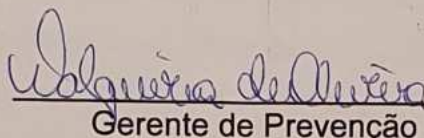 Walquiria de Oliveira
Gerente de Prevenção